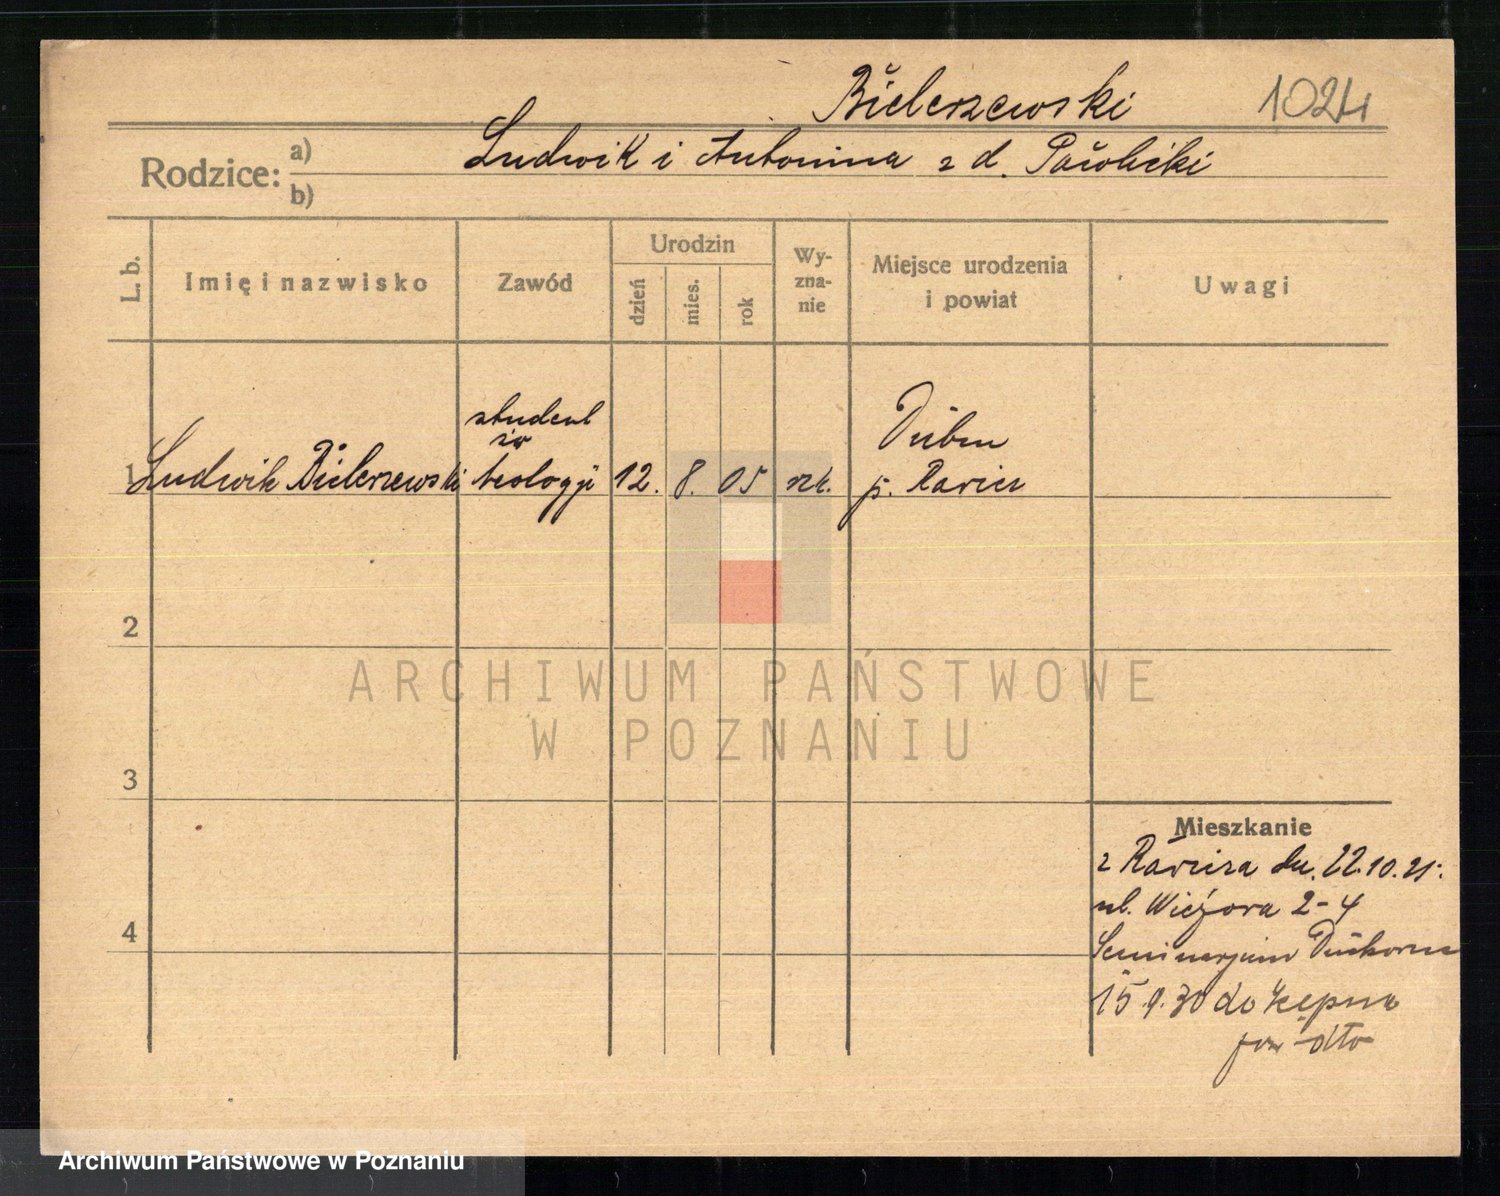 Bielerzewski 1024
Rodzice: a) b)
Ludwik i Antonina z d. Pawlicki
L. b.
Imię i nazwisko
Zawód
Urodzin
dzień
mies.
rok
Wy-
zna-
nie
Miejsce urodzenia
i powiat
Uwagi
student
św
teologji
Dubin
1 Ludwik Bielerzewski 12. 8. 05 rzk. p. Rawicz
2
3
4
Mieszkanie
z Rawicza dn. 22.10.25.
ul. Wieżowa 2-4
Seminarjum Duchowne
15.9.30 do Kępna
pow dto
ARCHIWUM PAŃSTWOWE
W POZNANIU
Archiwum Państwowe w Poznaniu